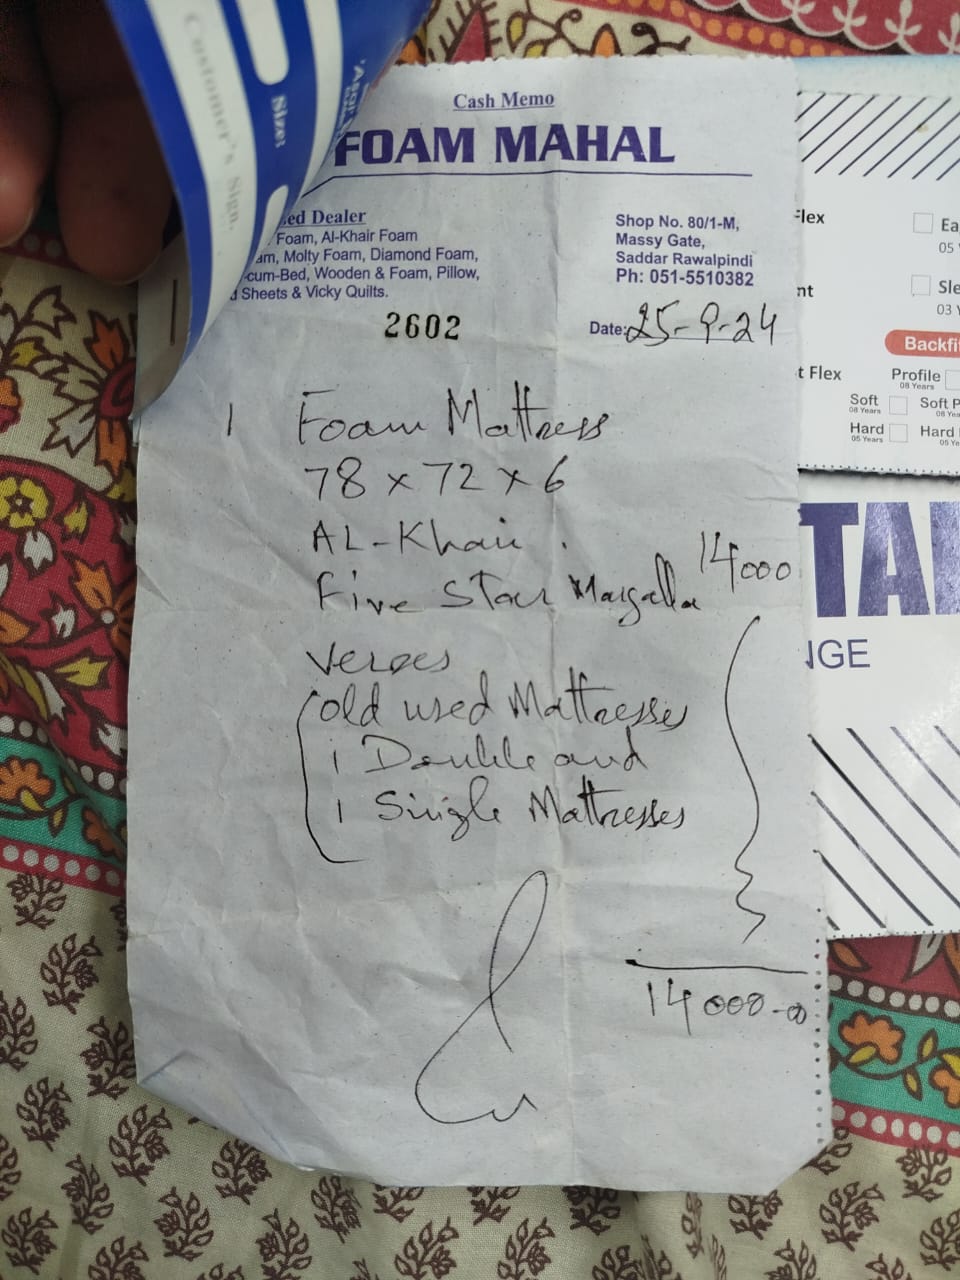 Customer's Sign.
Size:
Cash Memo
FOAM MAHAL
ed Dealer
Foam, Al-Khair Foam
am, Molty Foam, Diamond Foam,
-cum-Bed, Wooden & Foam, Pillow,
Sheets & Vicky Quilts.
Shop No. 80/1-M,
Massy Gate,
Saddar Rawalpindi
Ph: 051-5510382
2602
Date: 25-9-24
1 Foam Mattress
78 x 72 x 6
AL-Khair.
Five Star Margalla 14000
Verses
old used Mattresses
1 Double and
1 Single Mattresses
14000-00
Flex
Ea
05 Y
nt
Sle
03 Y
Backfi
t Flex
Profile
08 Years
Soft
08 Years
Soft P
08 Ye
Hard
05 Years
Hard
05 Ye
TAN
NGE